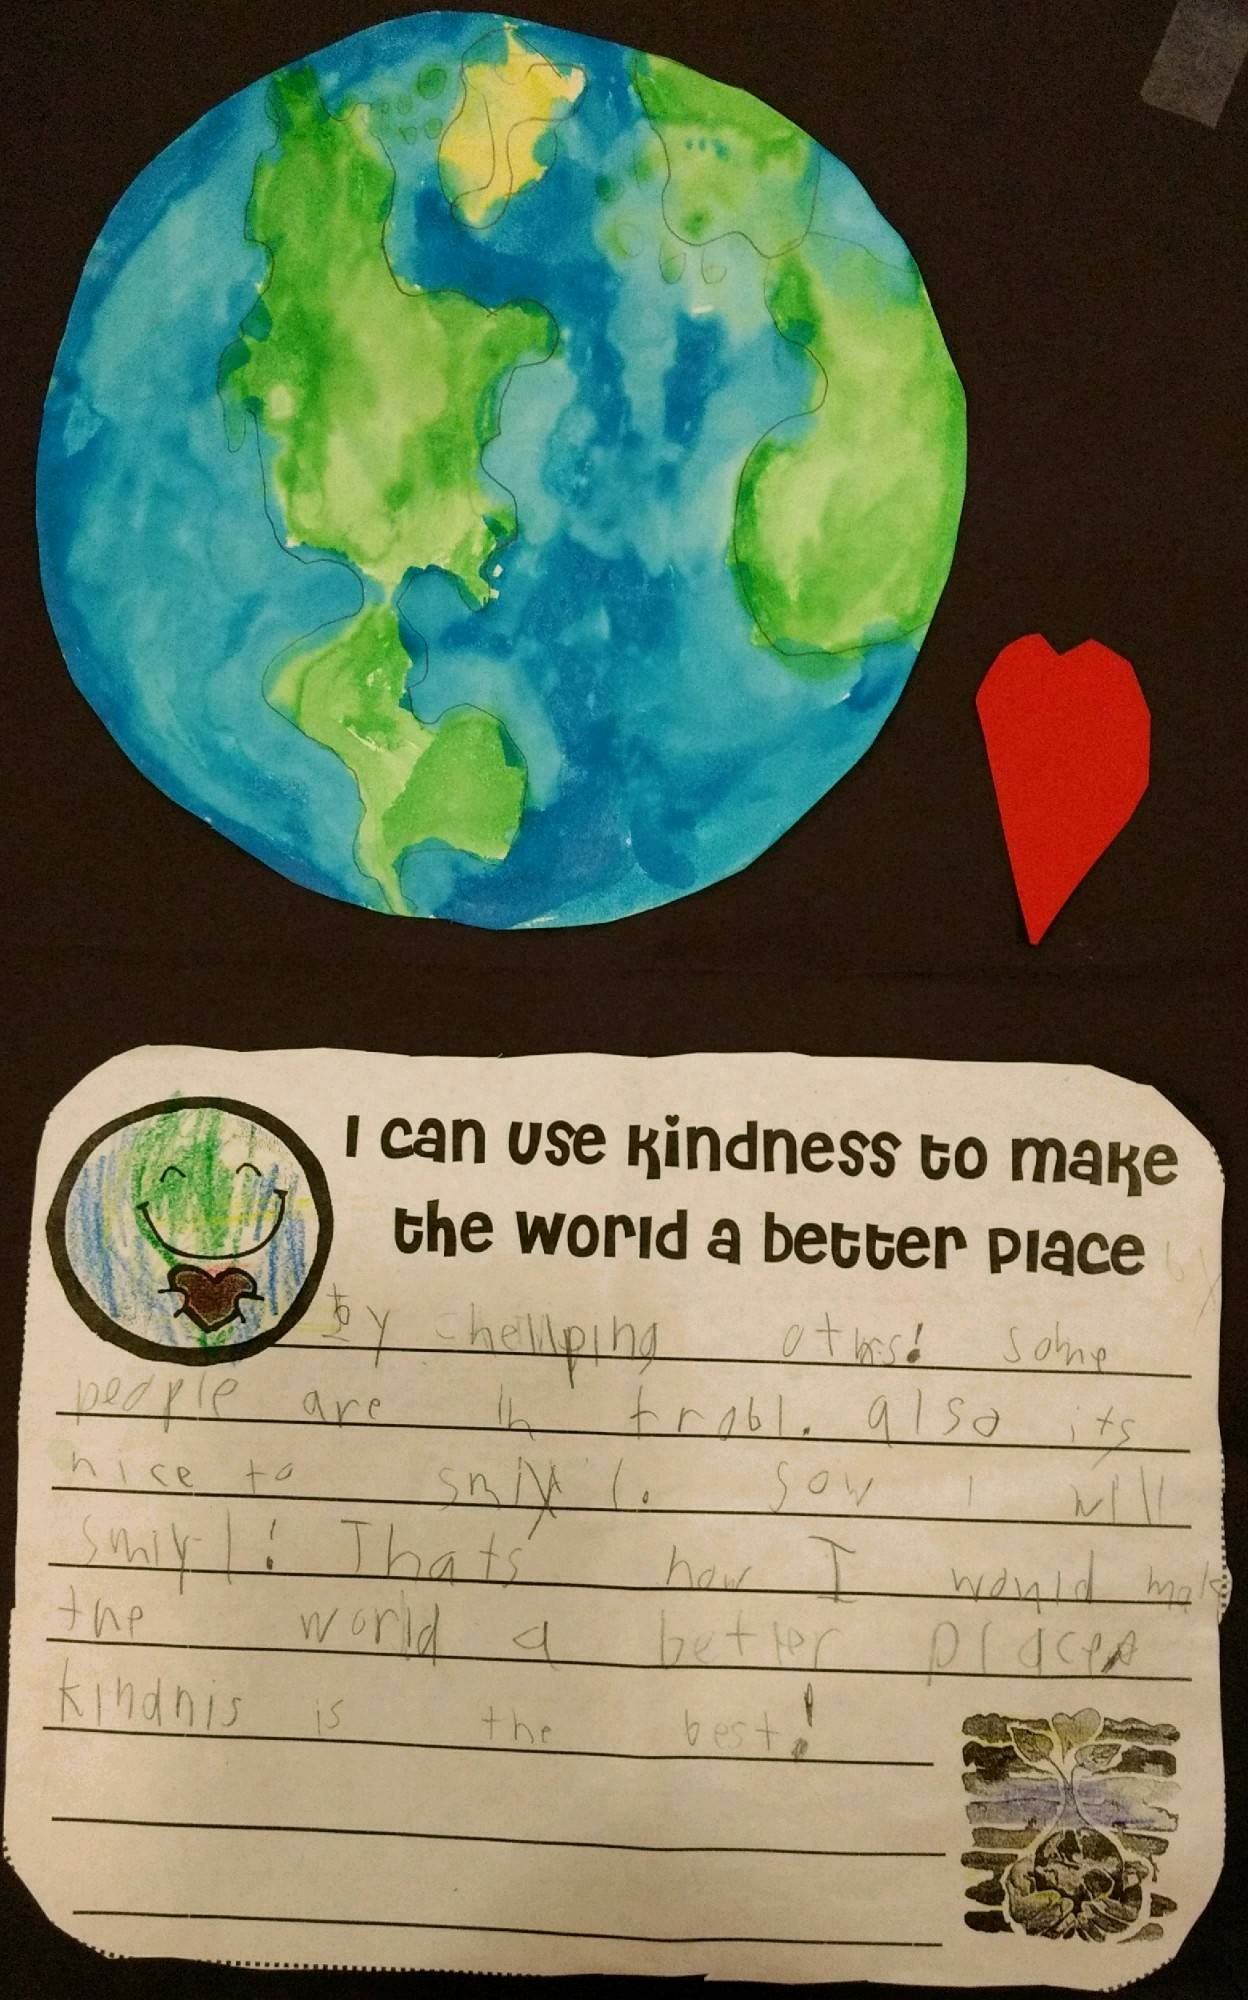 I can use kindness to make
the world a better place
by hellping othrs! some
people are in trobl. also its
nice to smiyl. sow I will
smiyl! Thats how I would make
the world a better place
kindnis is the best!